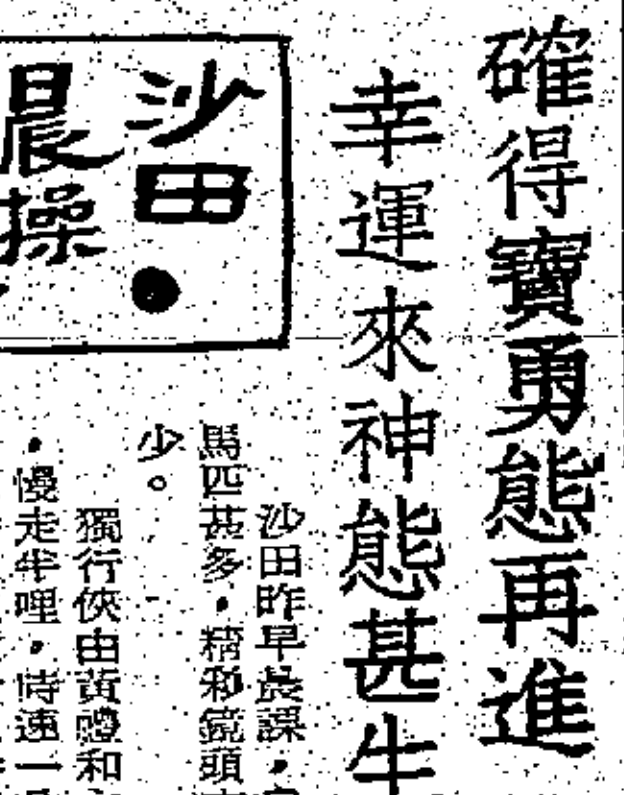 確得寶勇態再進
幸運來神態甚生
沙田・
晨操
沙田昨早晨課，
馬匹甚多，精彩鏡頭
少。
獨行俠由黃體和
，慢走半哩，時速一